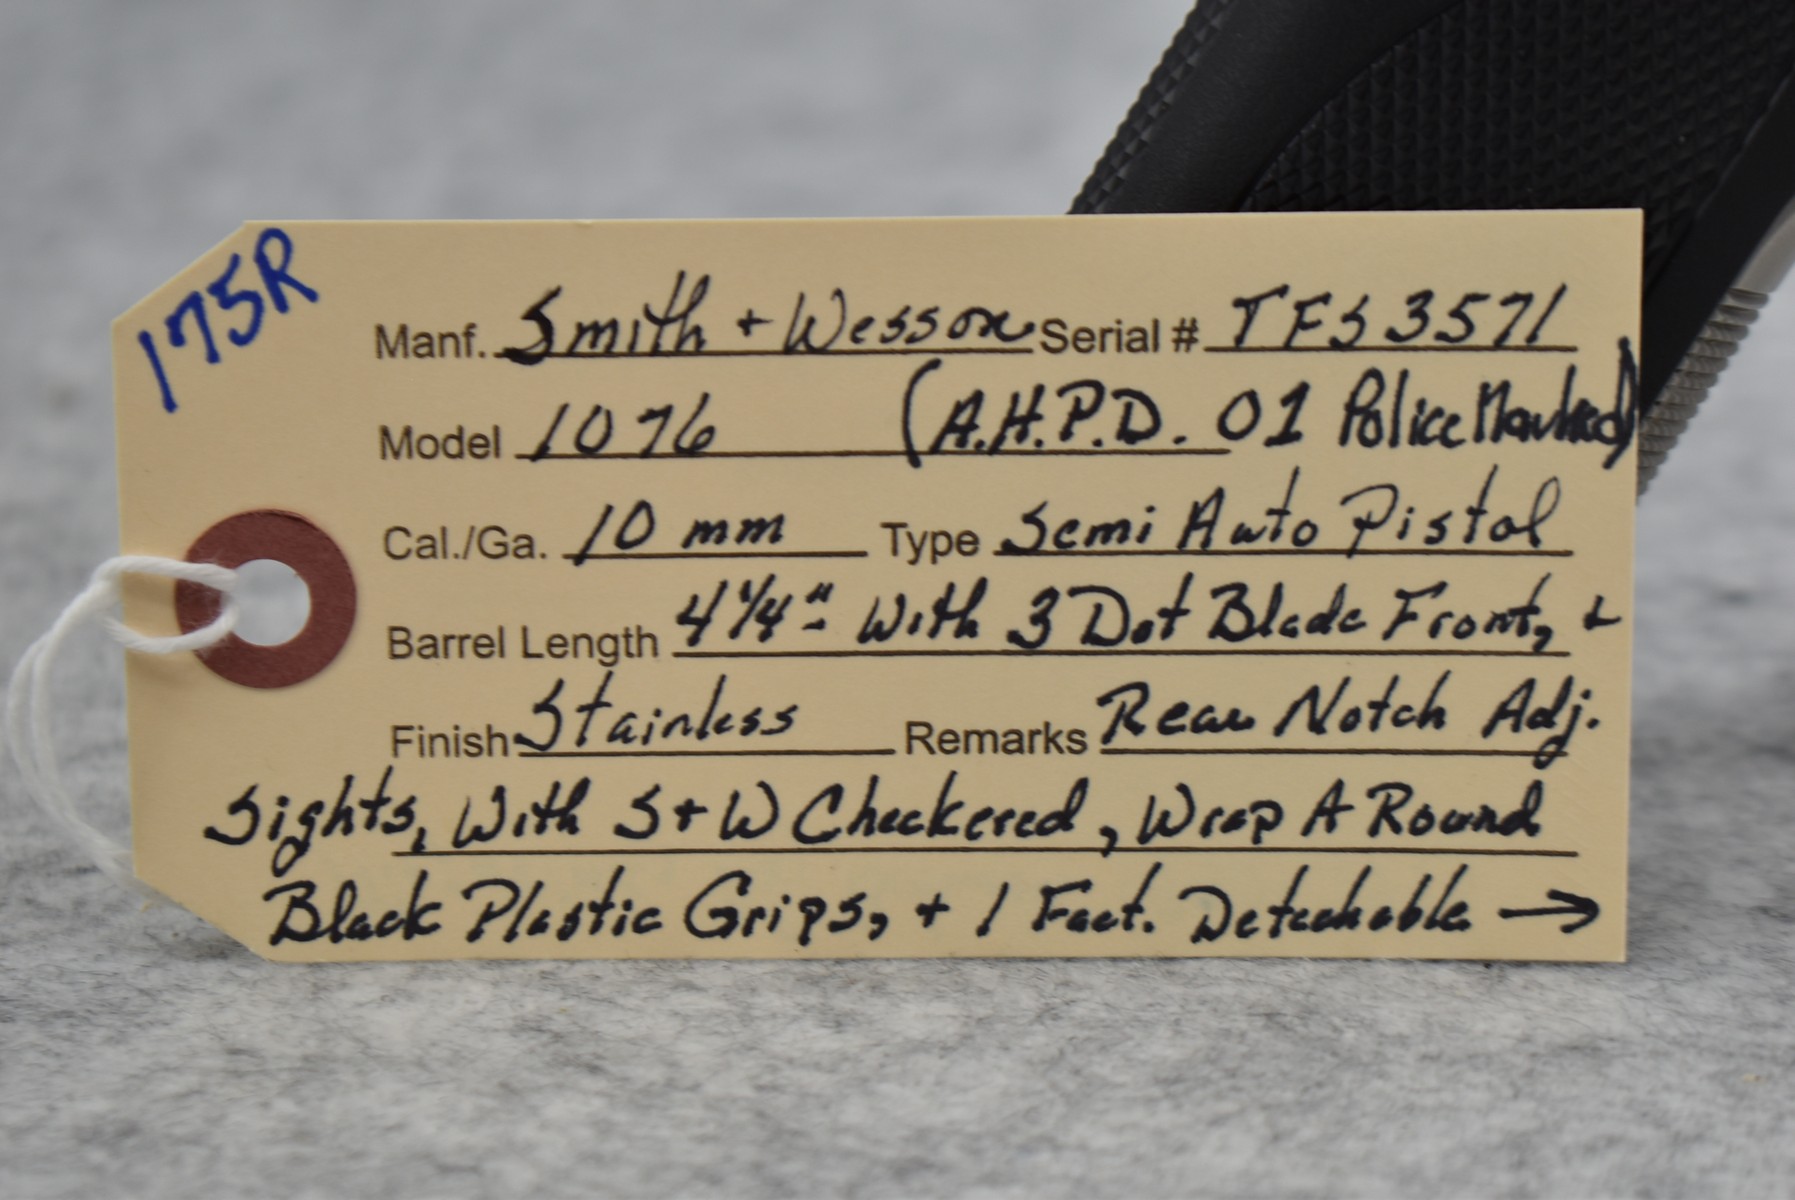 175R
Manf. Smith + Wesson Serial # TFS3571
Model 1076 (A.H.P.D. 01 Police Marked)
Cal./Ga. 10 mm Type Semi Auto Pistol
Barrel Length 4 1/4" With 3 Dot Blade Front, +
Finish Stainless Remarks Rear Notch Adj.
Sights, With S+W Checkered, Wrap A Round
Black Plastic Grips, + 1 Fact. Detachable →